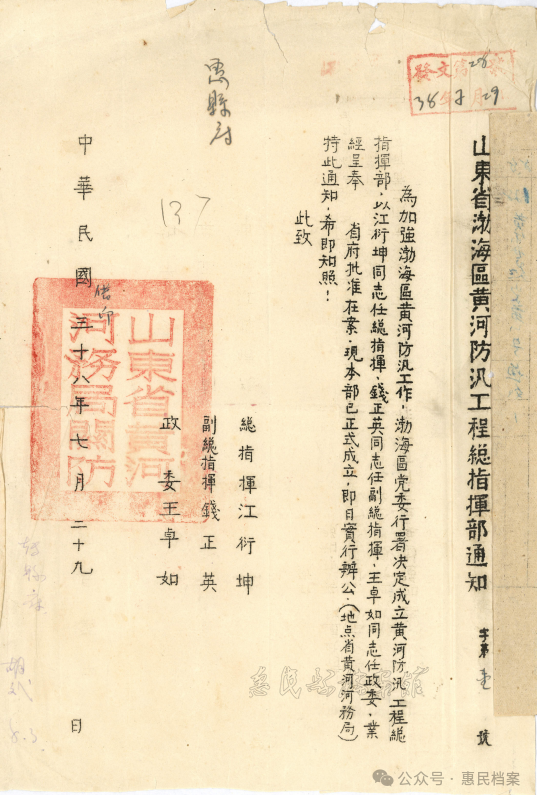 山東省渤海區黃河防汎工程總指揮部通知 字第壹號
發文
38年7月29
為加強渤海區黃河防汎工作,渤海區党委行署決定成立黃河防汎工程總
指揮部,以江衍坤同志任總指揮,錢正英同志任副總指揮,王卓如同志任政委,業
經呈奉 省府批准在案,現本部已正式成立,即日實行辦公,(地点省黃河河務局)
持此通知,希即知照!
此致
惠縣府
137
總指揮江衍坤
副總指揮錢正英
政委王卓如
山東省黃河河務局關防
借印
中華民國三十八年七月二十九日
8.3
惠民档案馆
公众号·惠民档案